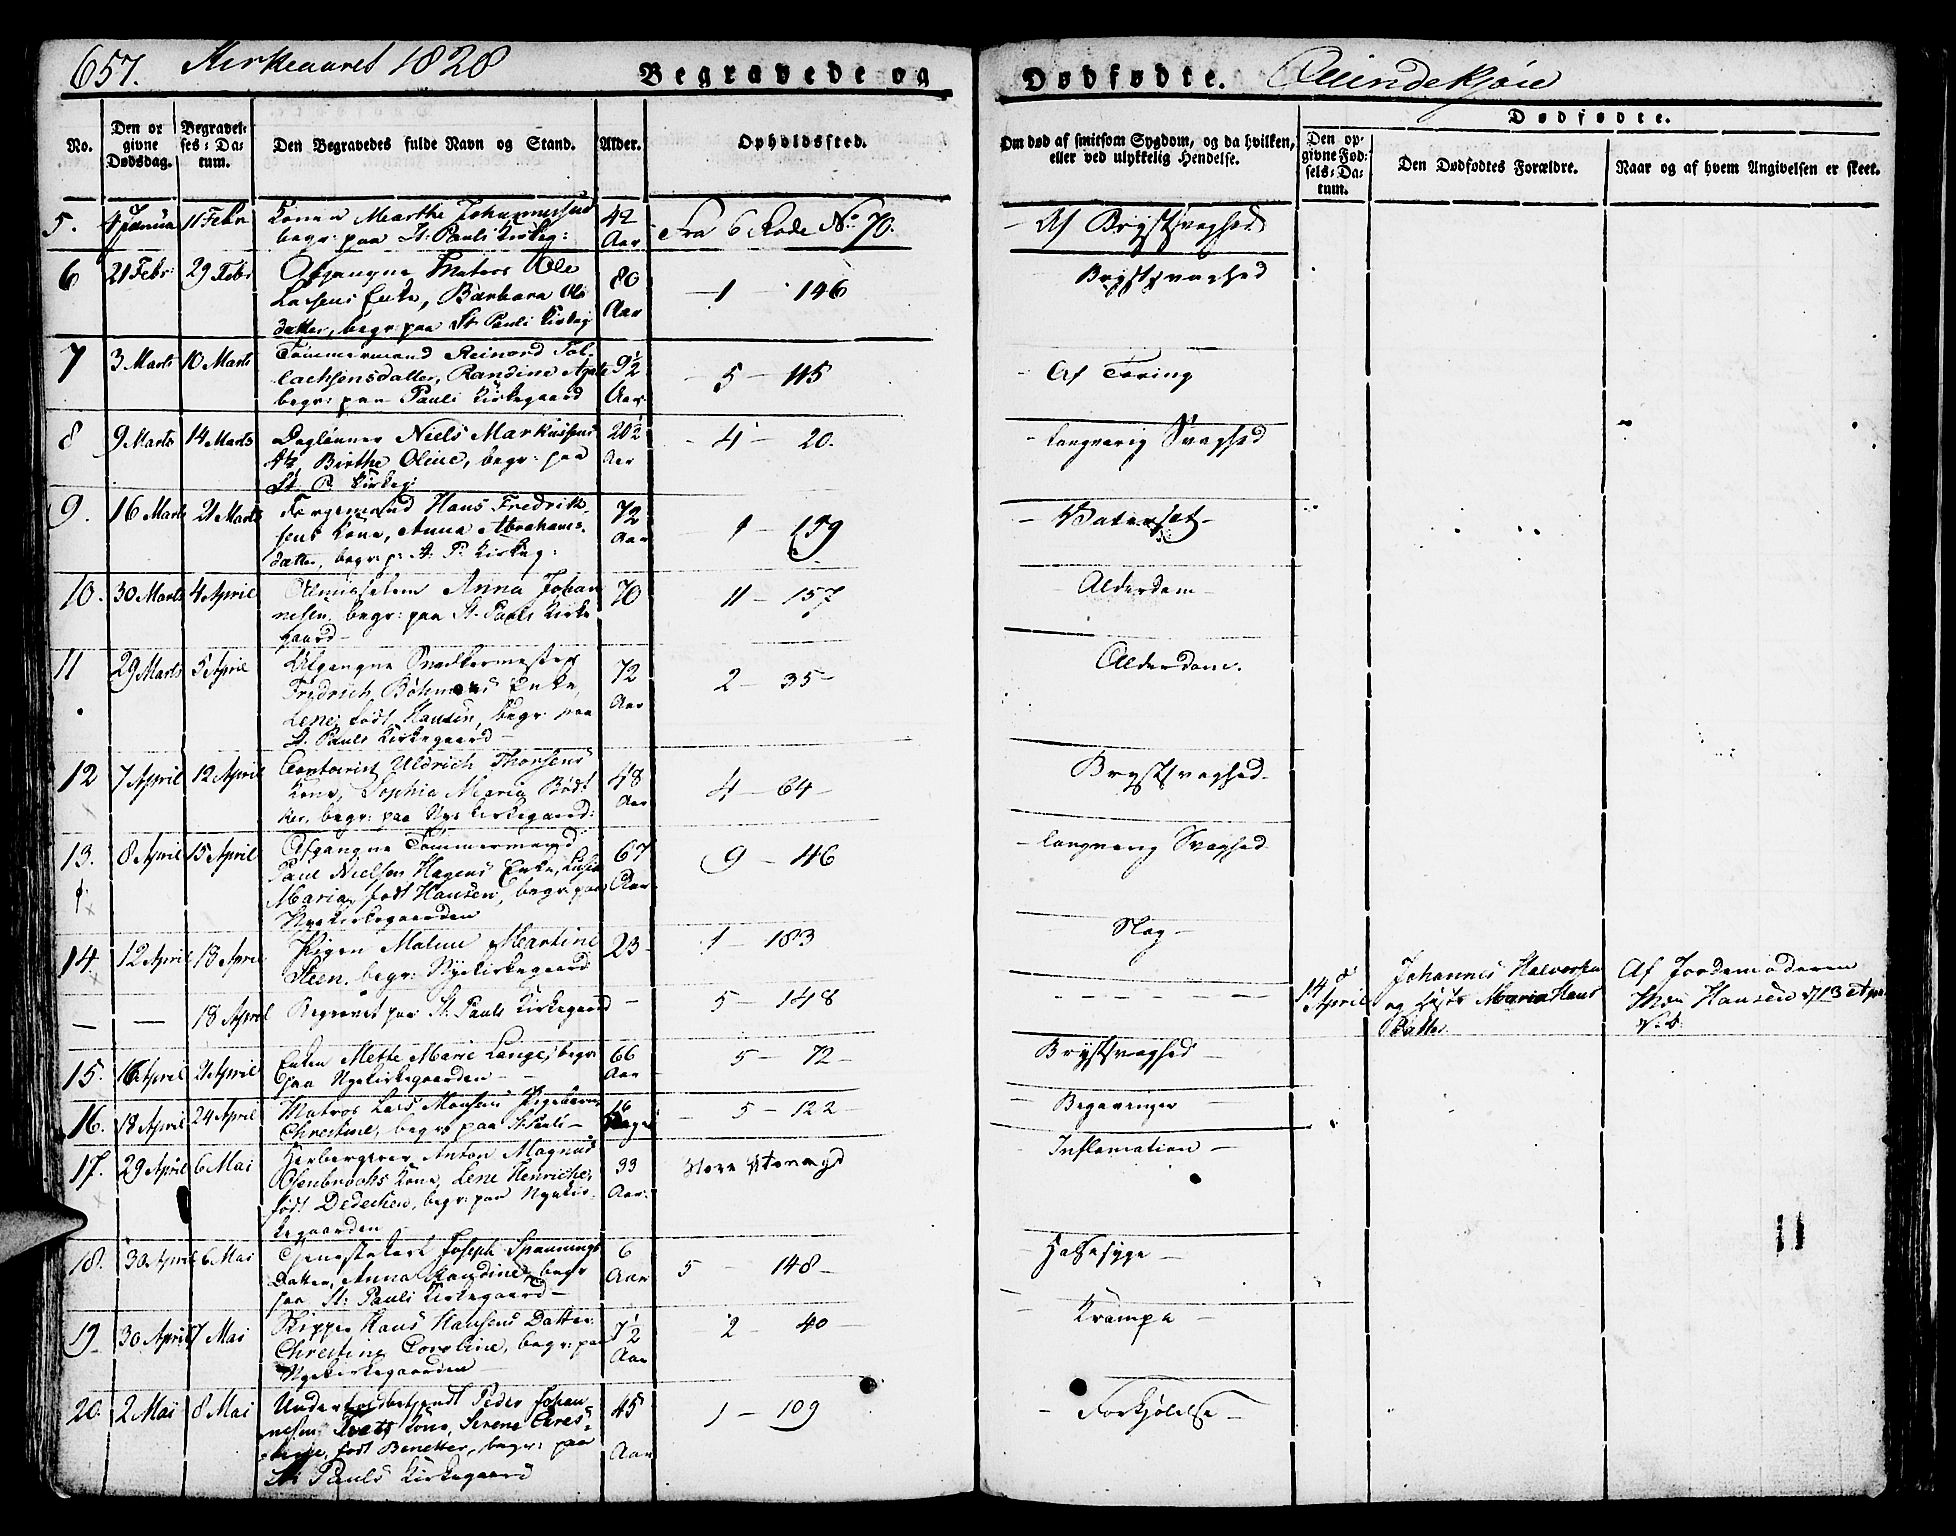 657. Kirkeaaret 1828
Begravede og
Dødfødte. Qvindekjøn
No.
Den op
givne
Dødsdag.
Begravel-
ses-Da-
tum.
Den Begravedes fulde Navn og Stand.
Alder.
Opholdssted.
Om død af smitsom Sygdom, og da hvilken,
eller ved ulykkelig Hendelse.
Dødfødte.
Den op-
givne Fød-
sels-Da-
tum.
Den Dødfødtes Forældre.
Naar og af hvem Angivelsen er skeet.
5. 4 Janua 11 Febr Konen Marthe Johannesdat 42 Fra 6 Rode No. 70. Af Brystsvaghed
begr: paa St. Pauli Kirkeg: Aar
6 21 Febr: 29 Febr Afgangne Matros Ole 80 1 - 146 Brystsvaghed
Larsens Enke, Barbara Ols Aar
datter, begr: paa St Pauli Kirkeg
7 3 Marts 10 Marts Tømmermand Reinord Tol- 9½ 5 - 115 Af Tæring
lachsens datter, Randine
begr: paa Pauli Kirkegaard Aar
8 9 Marts 14 Marts Dagleiner Niels Markussens 20½ 4 - 20. Langvarig Svaghed
Birthe Oline, begr: paa Aar
St. P. Kirkeg:
9. 16 Marts 21 Marts Færgemand Hans Fredrik- 72 1 - 159 Vatersot
sens Kone, Anna Abrahams- Aar
datter, begr: p: St. P. Kirkeg:
10. 30 Marts 4 April Anna Johan 70 11 - 157 Alderdom
nesen, begr: paa St. Pauls Kirke
gaard
11 29 Marts 5 April Afgangne Snedkermester 72 2 - 35 Alderdom.
Fredrich Böhmes Enke, Aar
Lene, født Hansen, begr: paa
St. Pauls Kirkegaard
12 7 April 12 April Contoirist Uldrich Thonsens 48 4 - 64 Brystsvaghed
Kone, Sophia Maria Bødt Aar
ker, begr: paa Nye Kirkegaard:
13. 8 April 15 April Afgangne Tømmermand 67 9 - 46 Langvarig Svaghed
Paul Nielsen Hagens Enke, Aar
Maria, født Hansen, begr: paa
Nyekirkegaarden
14. 12 April 18 April Pigen Malene Martine 23 1 - 183 Slag
Steen, begr: Nyekirkegaard
— — 18 April Begravet paa St. Pauls Kirkegaard — 5 - 148 14 April Johannes Halvorsen Af Jordemoderen
og Maria Hans Hansen
Datter
15. 16 April 21 April Enken Mette Marie Lange, begr: 66 5 - 72 Brystsvaghed
paa Nyekirkegaarden Aar
16. 18 April 24 April Matros Lars Monsens Pigebarn 5 - 122
Christine, begr: paa St. Pauli
17. 29 April 6 Mai Herbergerer Anton Magnus 33 Inflamation
Kone, Lene Henriche, Aar
født Dedechen, begr: paa Nyekir-
kegaarden
18. 30 April 6 Mai Joseph Spannings 6 5 - 148 Halsesyge
Datter, Anna Randine, begr Aar
paa St. Pauli Kirkegaard
19 30 April 7 Mai Skipper Hans Hansens Datter 7½ 2 - 40 Krampe
Christine Caroline, begr: paa Aar
Nyekirkegaarden
20. 2 Mai 8 Mai Peder Johan- 45 1 - 109 Forkjølelse
nesen Kone, Serene
født Benetter, begr: paa Aar
St. Pauls Kirkegaard